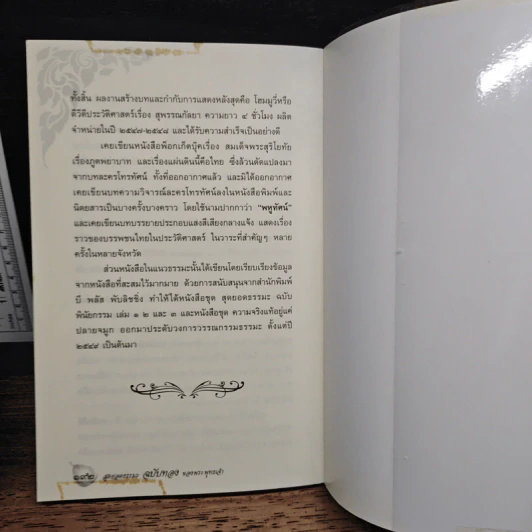 ทั้งสิ้น ผลงานสร้างบทและกำกับการแสดงหลังสุดคือ โฮมมูวี่หรือ
ดีวีดีประวัติศาสตร์เรื่อง สุพรรณกัลยา ความยาว ๔ ชั่วโมง ผลิต
จำหน่ายในปี ๒๕๔๗-๒๕๔๘ และได้รับความสำเร็จเป็นอย่างดี
เคยเขียนหนังสือพ็อกเก็ตบุ๊คเรื่อง สมเด็จพระสุริโยทัย
เรื่องภูตพยาบาท และเรื่องแผ่นดินนี้คือไทย ซึ่งล้วนดัดแปลงมา
จากบทละครโทรทัศน์ ทั้งที่ออกอากาศแล้ว และมิได้ออกอากาศ
เคยเขียนบทความวิจารณ์ละครโทรทัศน์ลงในหนังสือพิมพ์และ
นิตยสารเป็นบางครั้งบางคราว โดยใช้นามปากกาว่า "พหูทัศน์"
และเคยเขียนบทบรรยายประกอบแสงสีเสียงกลางแจ้ง แสดงเรื่อง
ราวของบรรพชนไทยในประวัติศาสตร์ ในวาระที่สำคัญๆ หลาย
ครั้งในหลายจังหวัด
ส่วนหนังสือในแนวธรรมะนั้นได้เขียนโดยเรียบเรียงข้อมูล
จากหนังสือที่สะสมไว้มากมาย ด้วยการสนับสนุนจากสำนักพิมพ์
บี พลัส พับลิชชิ่ง ทำให้ได้หนังสือชุด สุดยอดธรรมะ ฉบับ
พินัยกรรม เล่ม ๑ ๒ และ ๓ และหนังสือชุด ความจริงแท้อยู่แค่
ปลายจมูก ออกมาประดับวงการวรรณกรรมธรรมะ ตั้งแต่ปี
๒๕๔๙ เป็นต้นมา
๑๙๒ ฉบับทอง ของพระพุทธเจ้า